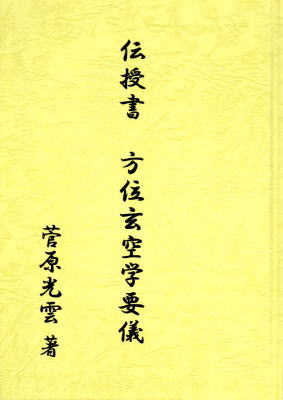 伝授書 方位玄空学要儀
菅原光雲 著